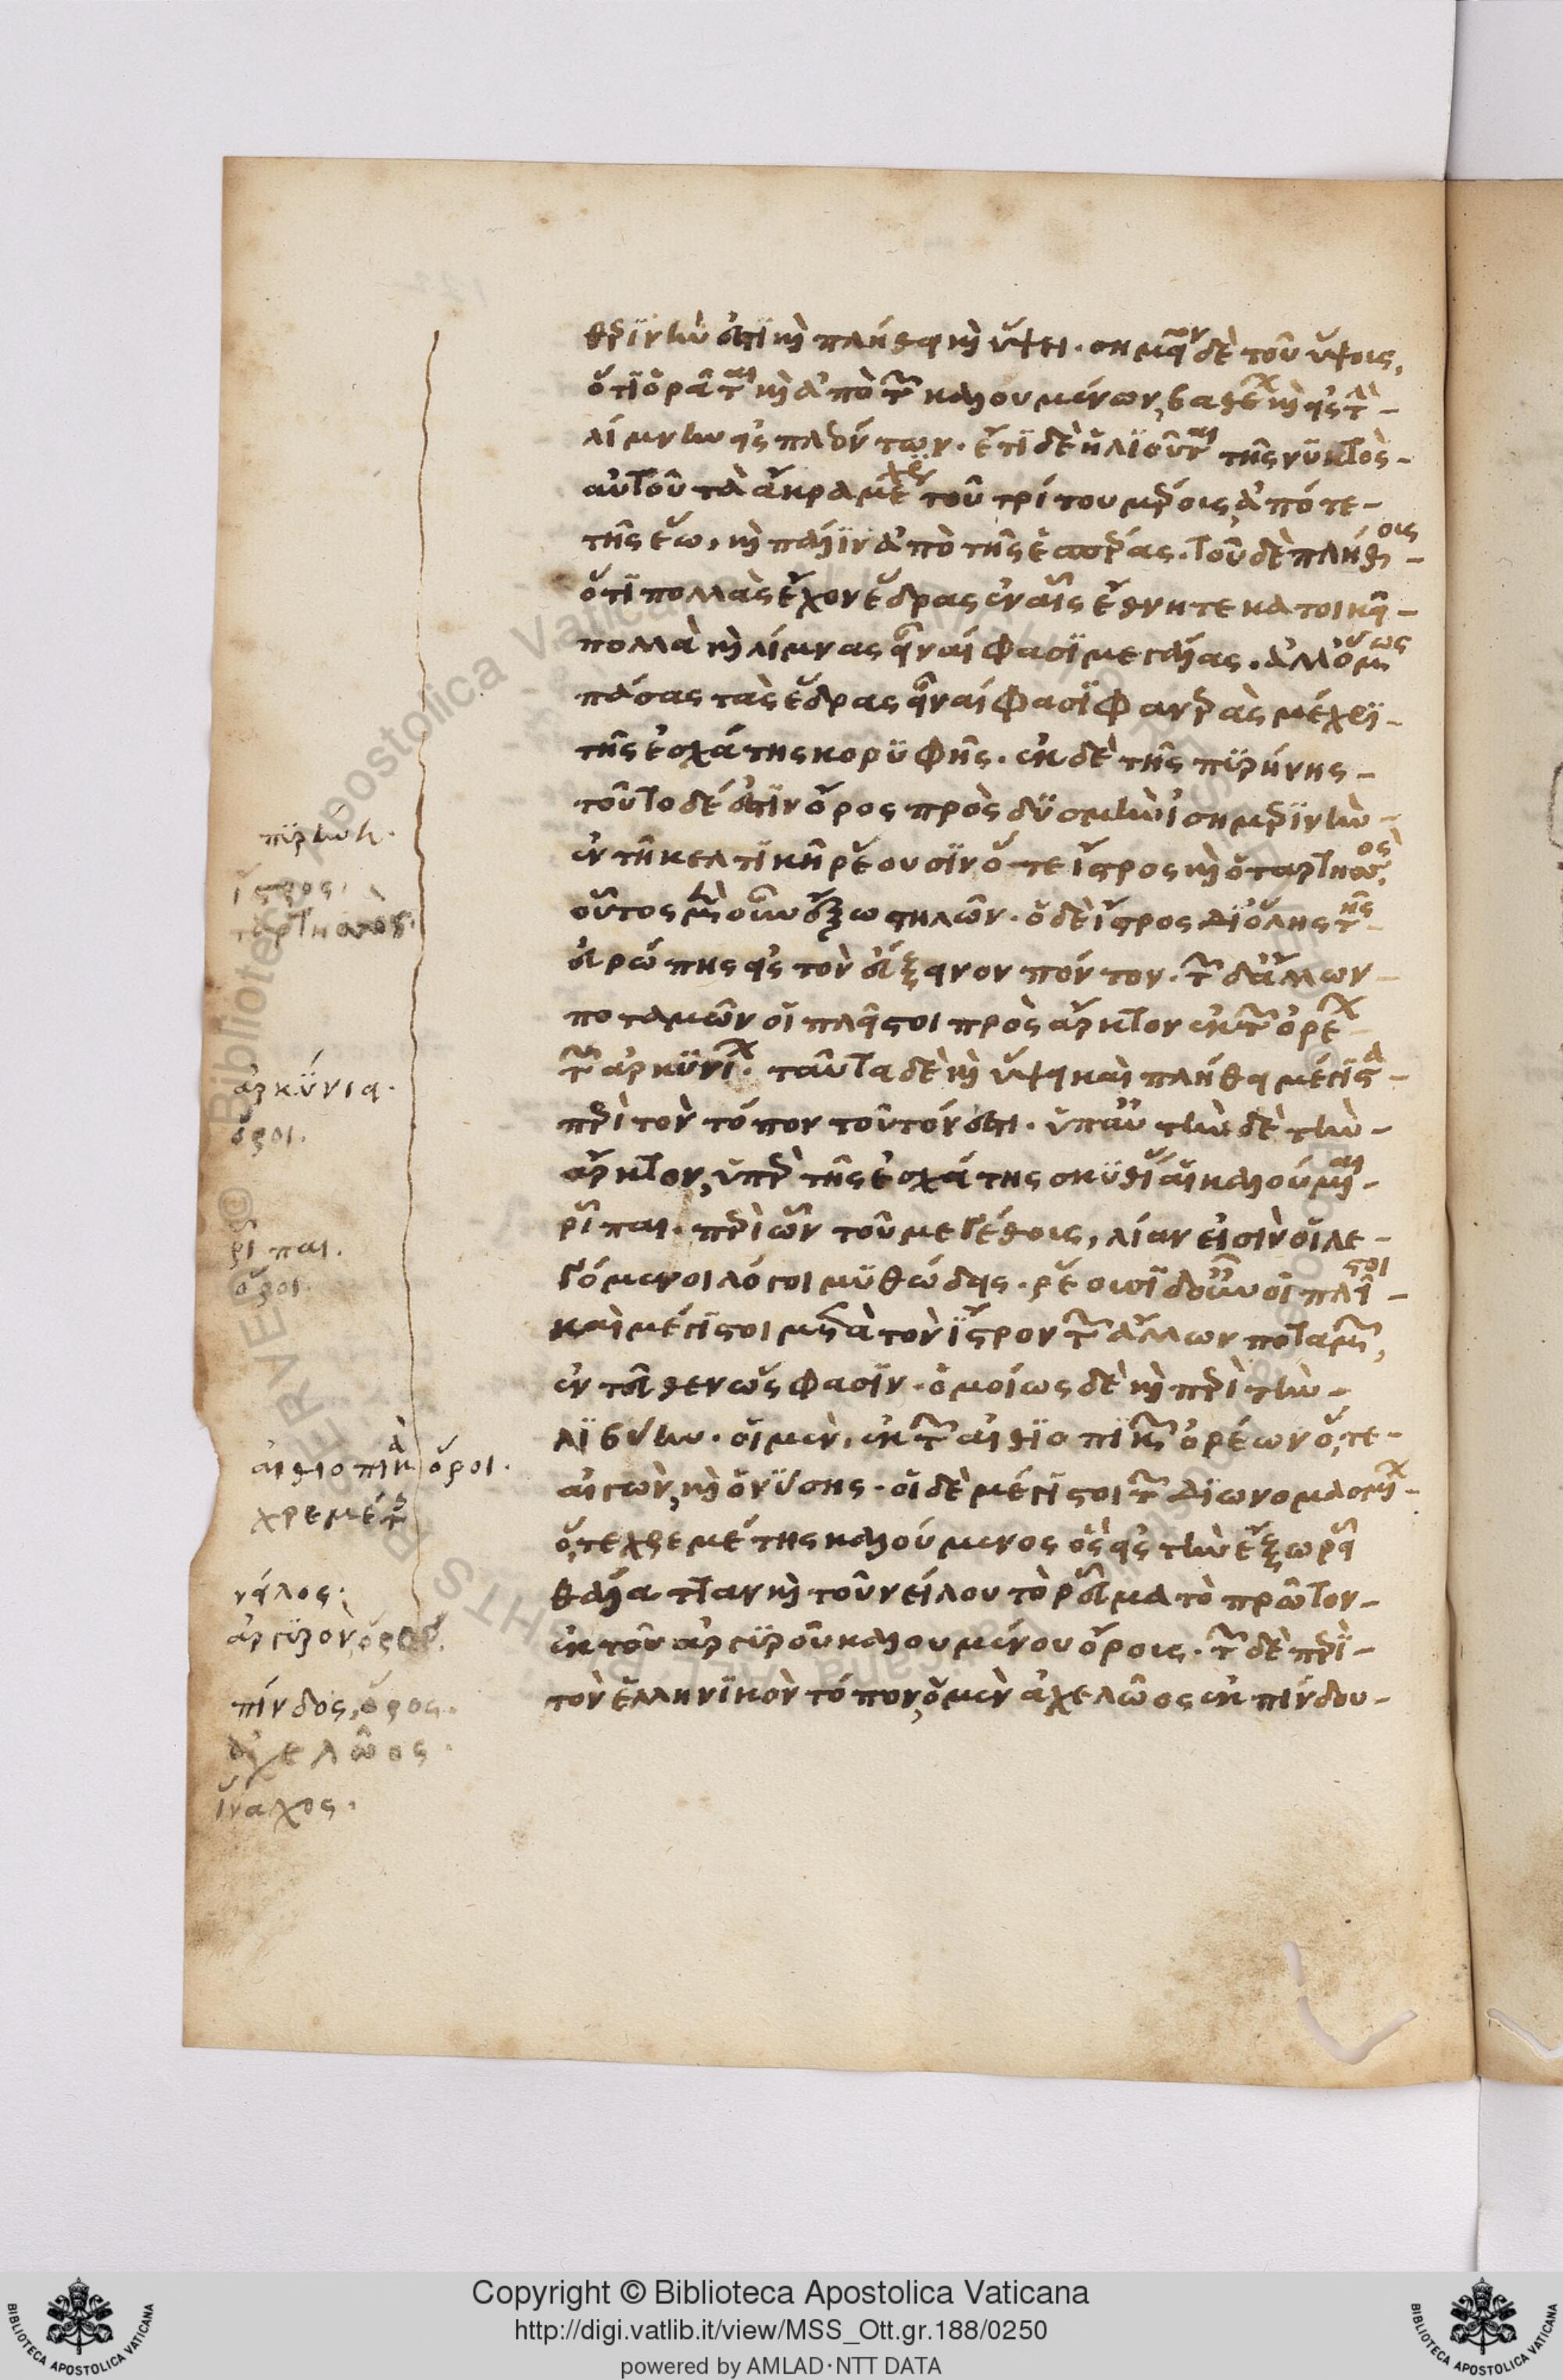 θρινὴν ἐστὶ καὶ πλήθει καὶ ὕψει. σημεῖον δὲ τοῦ ὕψους,
ὅτι ὁρᾶται καὶ ἀπὸ τῶν καλουμένων, βαθέων καὶ εἰς τὴν
λίμνην εἰσπλεόντων. ἔτι δὲ ἡλιοῦται τῆς νυκτὸς
αὐτοῦ τὰ ἄκρα μέχρι τοῦ τρίτου μέρους, ἀπό τε
τῆς ἕω, καὶ πάλιν ἀπὸ τῆς ἑσπέρας. τοῦ δὲ πλήθους
ὅτι πολλὰς ἔχον ἕδρας ἐν αἷς ἔθνη τε κατοικεῖ
πολλὰ καὶ λίμνας εἶναί φασι μεγάλας. ἀλλ' ὅμως
πάσας τὰς ἕδρας εἶναί φασι φανερὰς μέχρι
τῆς ἐσχάτης κορυφῆς. ἐκ δὲ τῆς πυρήνης
τοῦτο δέ ἐστιν ὄρος πρὸς δυσμὴν ἰσημερινὴν
ἐν τῇ κελτικῇ ῥέουσιν ὅ τε ἴστρος καὶ ὁ ταρτησός.
οὗτος μὲν οὖν ἔξω στηλῶν. ὁ δὲ ἴστρος δι' ὅλης τῆς
εὐρώπης εἰς τὸν εὔξεινον πόντον. τῶν δ' ἄλλων
ποταμῶν οἱ πλεῖστοι πρὸς ἄρκτον ἐκ τῶν ὀρέων
τῶν ἀρκυνίων. ταῦτα δὲ καὶ ὕψει καὶ πλήθει μέγιστα
περὶ τὸν τόπον τοῦτόν ἐστι. ὑπ' αὐτὴν δὲ τὴν
ἄρκτον, ὑπὲρ τῆς ἐσχάτης σκυθίας αἱ καλούμεναι
ῥῖπαι. περὶ ὧν τοῦ μεγέθους, λίαν εἰσὶν οἱ λε
γόμενοι λόγοι μυθώδεις. ῥέουσι δ' οὖν οἱ πλεῖστοι
καὶ μέγιστοι μετὰ τὸν ἴστρον τῶν ἄλλων ποταμῶν,
ἐντεῦθεν ὥς φασιν. ὁμοίως δὲ καὶ περὶ τὴν
λιβύην. οἱ μὲν, ἐκ τῶν αἰθιοπικῶν ὀρέων ὅ, τε
αἰγὼν, καὶ ὁ νύσης. οἱ δὲ μέγιστοι τῶν διωνομασμένων
ὅ, τε χρεμέτης καλούμενος ὃς εἰς τὴν ἔξω ῥεῖ
θάλατταν καὶ τοῦ νείλου τὸ ῥεῦμα τὸ πρῶτον
ἐκ τοῦ ἀργυροῦ καλουμένου ὄρους. τῶν δὲ περὶ
τὸν ἑλληνικὸν τόπον, ὁ μὲν ἀχελῶος ἐκ πίνδου
πυρήνη.
ἴστρος.
ταρτησός.
ἀρκύνια.
ὄροι.
ῥῖπαι.
ὄροι.
αἰθιοπικὰ ὄροι.
χρεμέτης
νεῖλος.
ἀργυρὸν, ὄρος.
πίνδος, ὄρος.
ἀχελῶος.
ἴναχος.
Copyright © Biblioteca Apostolica Vaticana
http://digi.vatlib.it/view/MSS_Ott.gr.188/0250
powered by AMLAD·NTT DATA
BIBLIOTECA APOSTOLICA VATICANA
BIBLIOTECA APOSTOLICA VATICANA